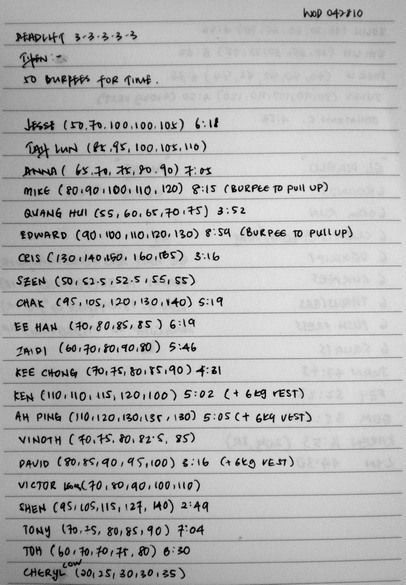 WOD 042810
DEADLIFT 3-3-3-3-3
THEN:-
50 BURPEES FOR TIME.
JESSE (50,70,100,100,105) 6:18
TAH LUN (85,95,100,105,110)
ANNA (65,70,75,80,90) 7:05
MIKE (80,90,100,110,120) 8:15 (BURPEE TO PULL UP)
QUANG HUI (55,60,65,70,75) 3:52
EDWARD (90,100,110,120,130) 8:59 (BURPEE TO PULL UP)
CRIS (130,140,150,160,165) 3:16
SZEN (50,52.5,52.5,55,55)
CHAK (95,105,120,130,140) 5:19
EE HAN (70,80,85,85) 6:19
ZAIDI (60,70,80,90,80) 5:46
KEE CHONG (70,75,80,85,90) 4:31
KEN (110,110,115,120,100) 5:02 (+6kg VEST)
AH PING (110,120,130,135,130) 5:05 (+6kg VEST)
VINOTH (70,75,80,82.5,85)
DAVID (80,85,90,95,100) 3:16 (+6kg VEST)
VICTOR (70,80,90,100,110)
SHEN (95,105,115,127,140) 2:49
TONY (70,75,80,85,90) 7:04
TOH (60,70,70,75,80) 6:30
CHERYL LOW (20,25,30,30,35)